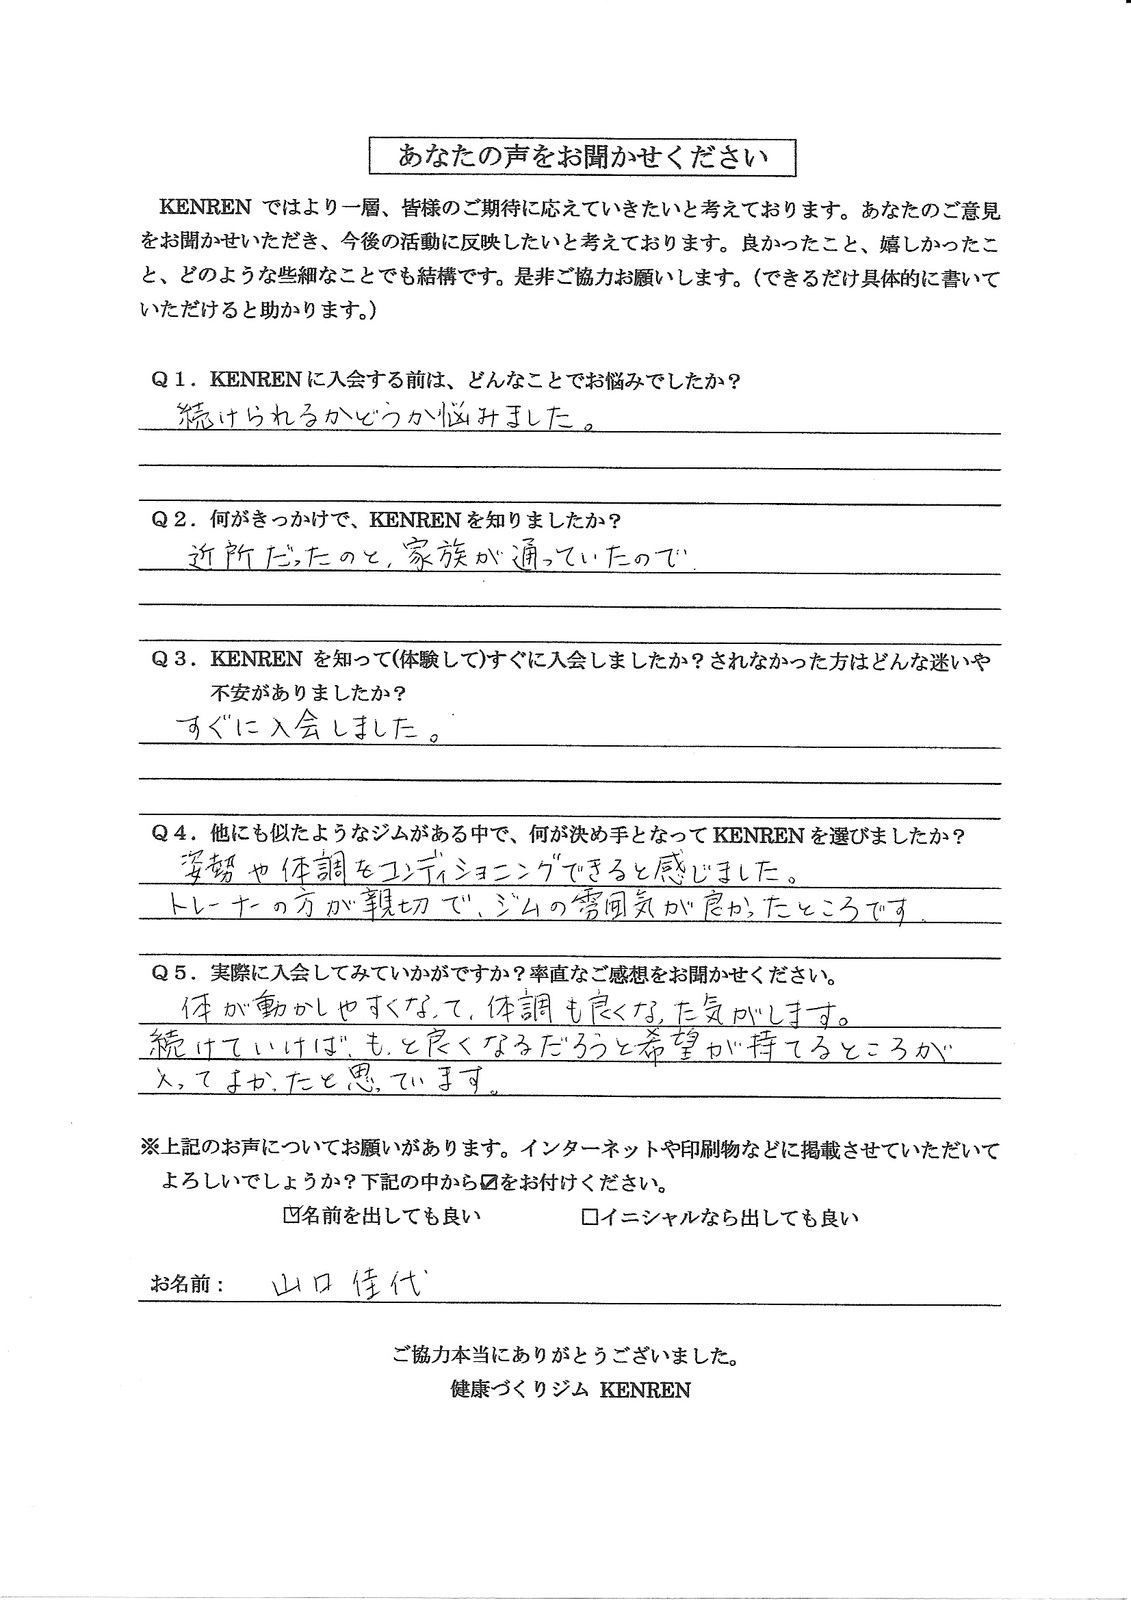 あなたの声をお聞かせください
KENREN ではより一層、皆様のご期待に応えていきたいと考えております。あなたのご意見
をお聞かせいただき、今後の活動に反映したいと考えております。良かったこと、嬉しかったこ
と、どのような些細なことでも結構です。是非ご協力お願いします。（できるだけ具体的に書いて
いただけると助かります。）
Q1．KENREN に入会する前は、どんなことでお悩みでしたか？
続けられるかどうか悩みました。
Q2．何がきっかけで、KENREN を知りましたか？
近所だったのと、家族が通っていたので
Q3．KENREN を知って(体験して)すぐに入会しましたか？されなかった方はどんな迷いや
不安がありましたか？
すぐに入会しました。
Q4．他にも似たようなジムがある中で、何が決め手となって KENREN を選びましたか？
姿勢や体調をコンディショニングできると感じました。
トレーナーの方が親切で、ジムの雰囲気が良かったところです。
Q5．実際に入会してみていかがですか？率直なご感想をお聞かせください。
体が動かしやすくなって、体調も良くなった気がします。
続けていけば、もっと良くなるだろうと希望が持てるところが
入ってよかったと思っています。
※上記のお声についてお願いがあります。インターネットや印刷物などに掲載させていただいて
よろしいでしょうか？下記の中から☑をお付けください。
☑名前を出しても良い　□イニシャルなら出しても良い
お名前： 山口 佳代
ご協力本当にありがとうございました。
健康づくりジム KENREN